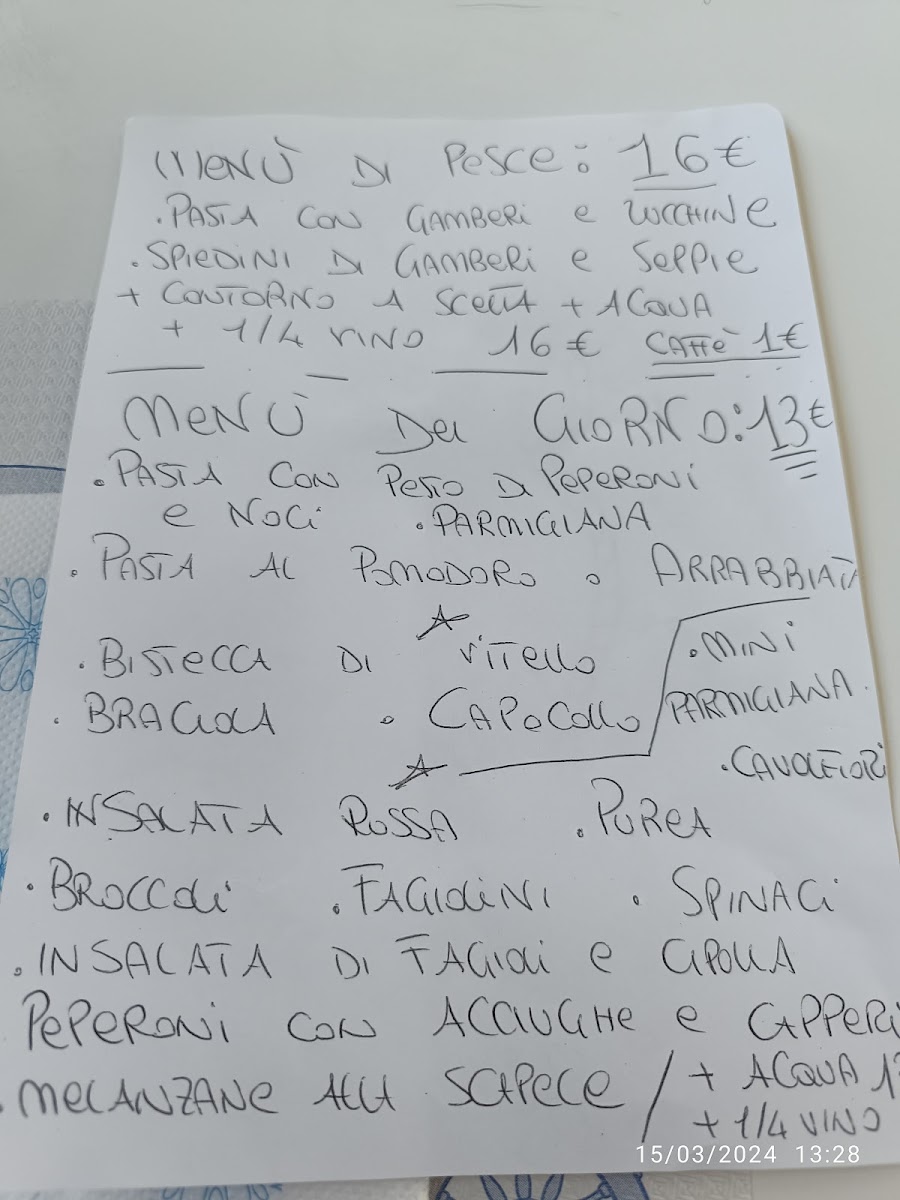 MENÙ DI PESCE: 16€
.PASTA CON GAMBERI e ZUCCHINE
.SPIEDINI DI GAMBERI e SEPPIE
+ CONTORNO A SCELTA + ACQUA
+ 1/4 VINO 16€ CAFFÈ 1€
MENÙ DEL GIORNO: 13€
.PASTA CON PESTO DI PEPERONI
e NOCI .PARMIGIANA
.PASTA AL POMODORO o ARRABBIATA
.BISTECCA DI VITELLO
.MINI
PARMIGIANA
.BRACIOLA . CAPOCOLLO
.CAVOLFIORI
.INSALATA ROSSA .PUREA
.BROCCOLI .FAGIOLINI . SPINACI
.INSALATA DI FAGIOLI e CIPOLLA
PEPERONI CON ACCIUGHE e CAPPERI
.MELANZANE ALLA SCAPECE / + ACQUA
+ 1/4 VINO
15/03/2024 13:28